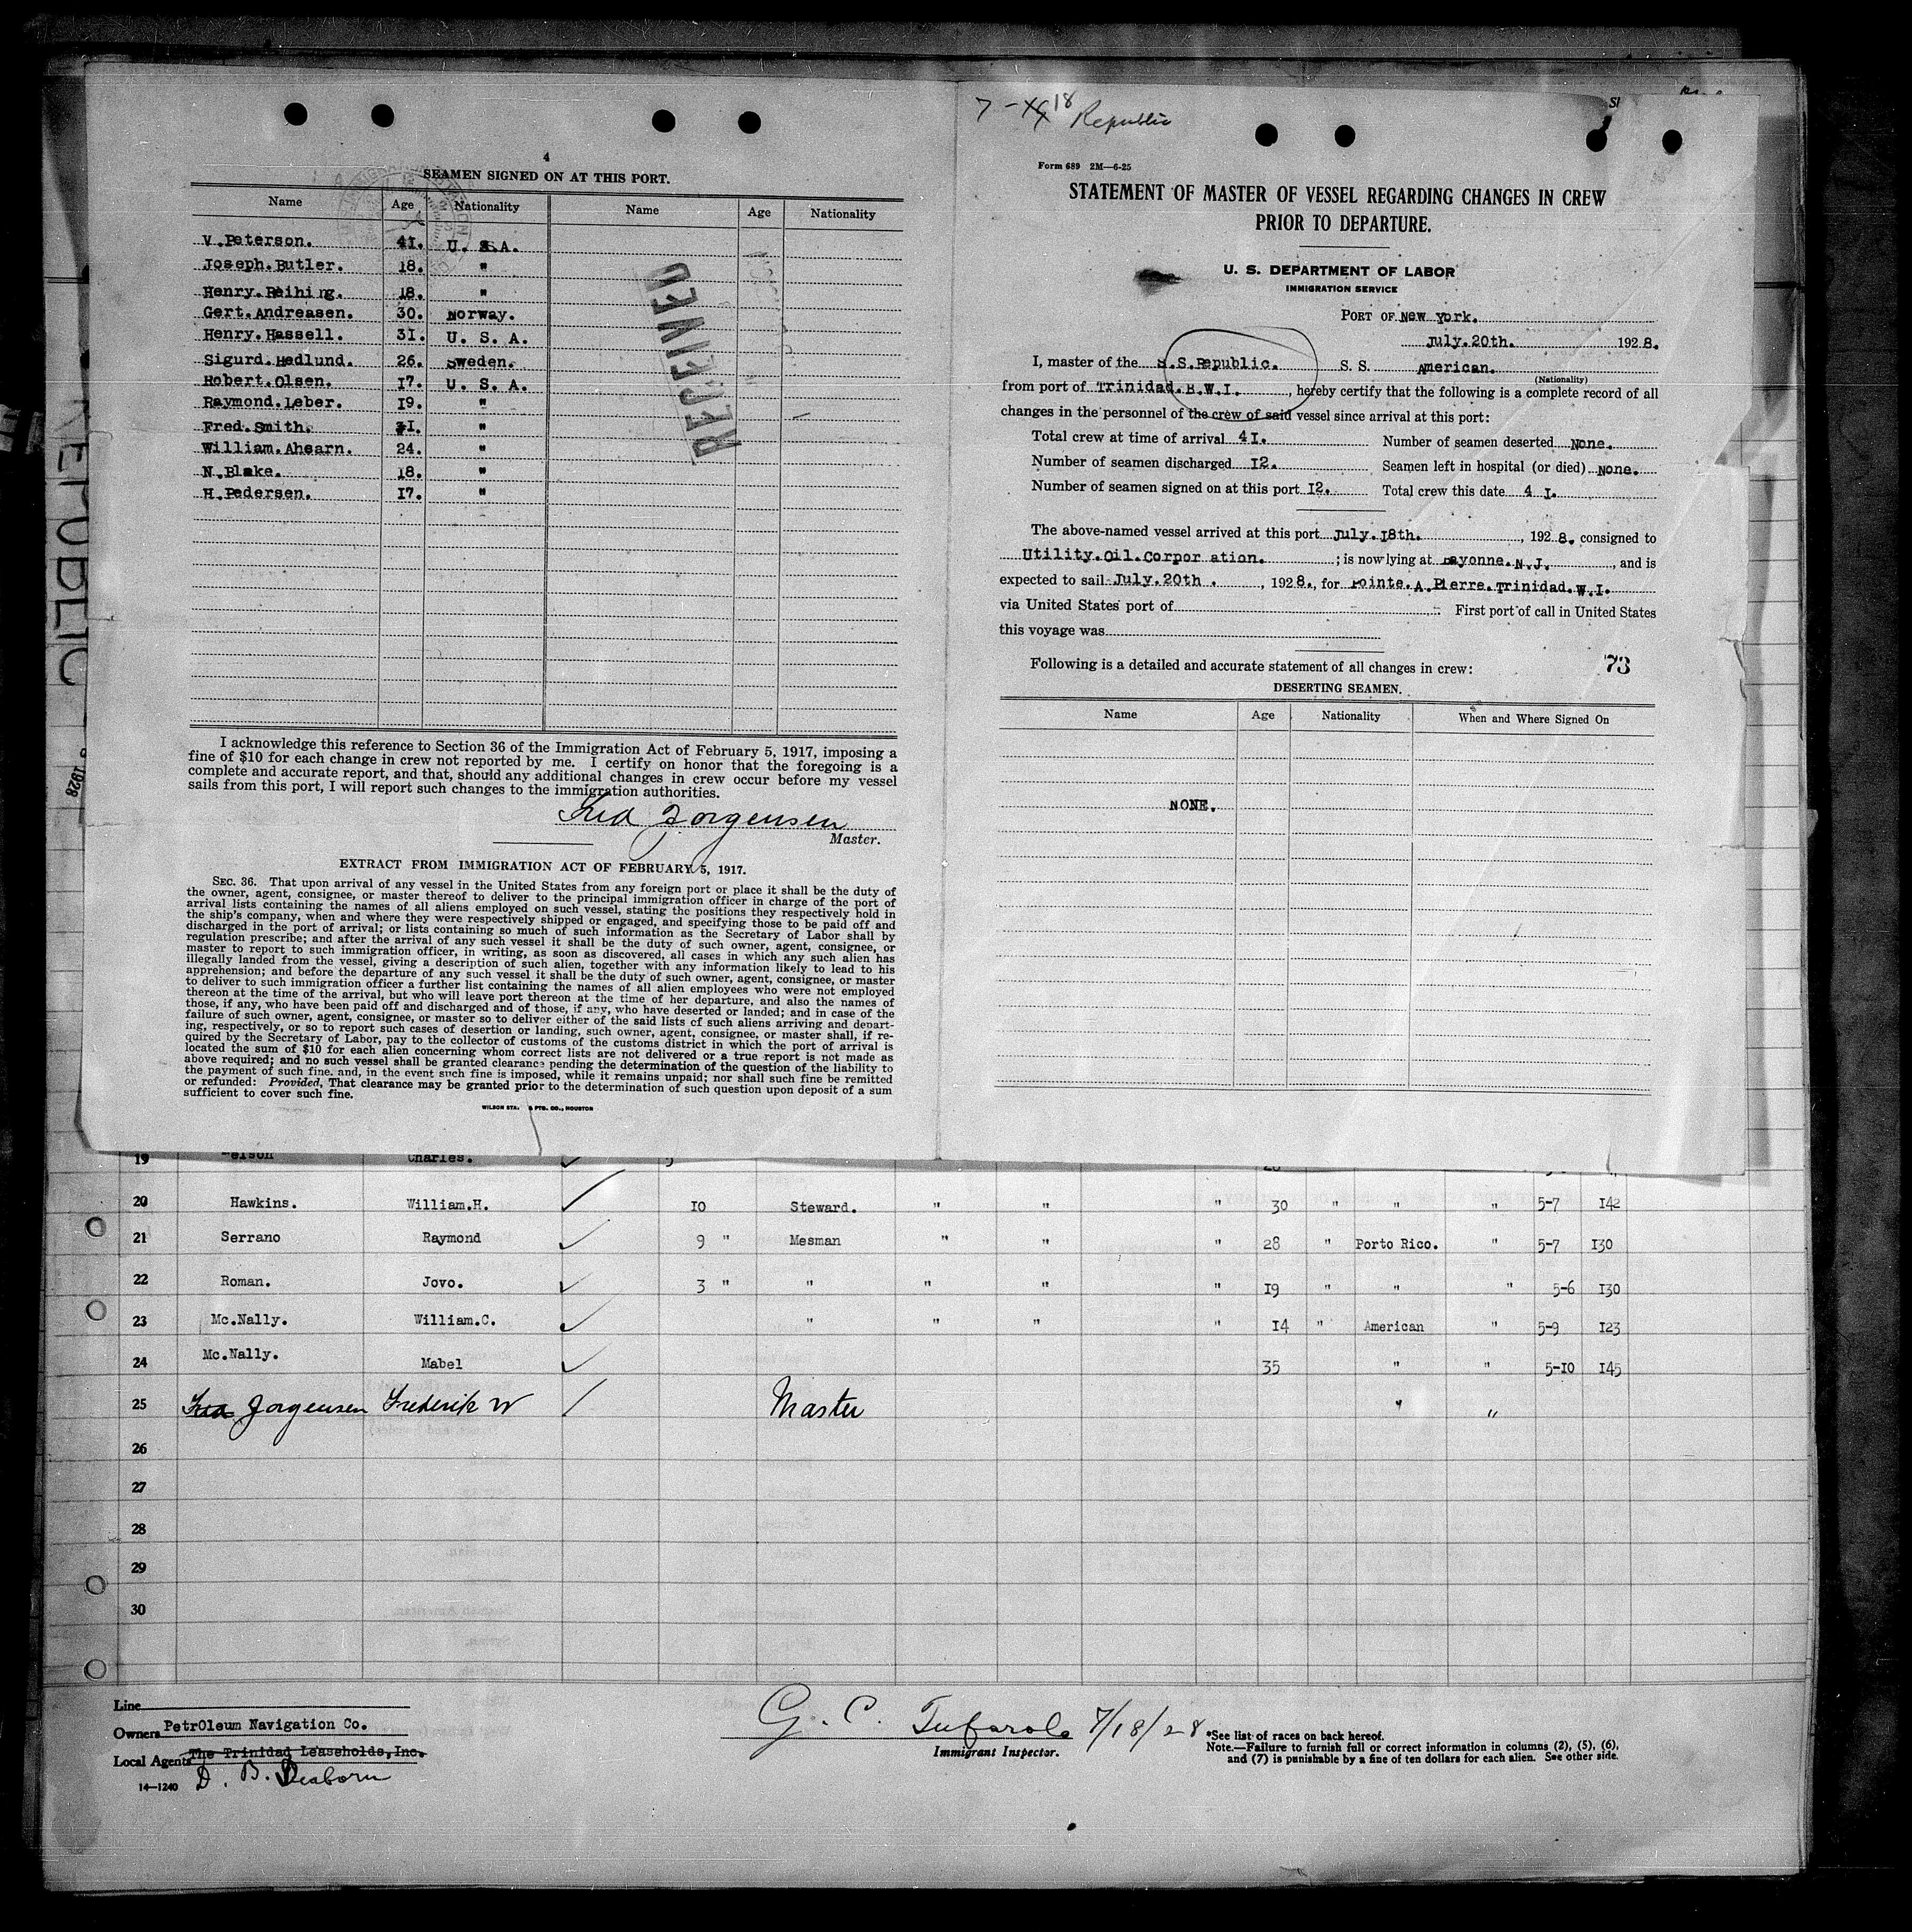 4
SEAMEN SIGNED ON AT THIS PORT.
Name Age Nationality Name Age Nationality
V.Peterson. 41. U. S.A.
Joseph.Butler. 18. "
Henry.Reihing. 18. "
Gert.Andreasen. 30. Norway.
Henry.Hassell. 31. U. S. A.
Sigurd.Hedlund. 26. Sweden.
Robert.Olsen. 17. U. S. A.
Raymond.Leber. 19. "
Fred.Smith. 31. "
William.Ahearn. 24. "
N.Blake. 18. "
H.Pedersen. 17. "
RECEIVED
I acknowledge this reference to Section 36 of the Immigration Act of February 5, 1917, imposing a
fine of $10 for each change in crew not reported by me. I certify on honor that the foregoing is a
complete and accurate report, and that, should any additional changes in crew occur before my vessel
sails from this port, I will report such changes to the immigration authorities.
Fred Jorgensen
Master.
EXTRACT FROM IMMIGRATION ACT OF FEBRUARY 5, 1917.
SEC. 36. That upon arrival of any vessel in the United States from any foreign port or place it shall be the duty of
the owner, agent, consignee, or master thereof to deliver to the principal immigration officer in charge of the port of
arrival lists containing the names of all aliens employed on such vessel, stating the positions they respectively hold in
the ship's company, when and where they were respectively shipped or engaged, and specifying those to be paid off and
discharged in the port of arrival; or lists containing so much of such information as the Secretary of Labor shall by
regulation prescribe; and after the arrival of any such vessel it shall be the duty of such owner, agent, consignee, or
master to report to such immigration officer, in writing, as soon as discovered, all cases in which any such alien has
illegally landed from the vessel, giving a description of such alien, together with any information likely to lead to his
apprehension; and before the departure of any such vessel it shall be the duty of such owner, agent, consignee, or master
to deliver to such immigration officer a further list containing the names of all alien employees who were not employed
thereon at the time of the arrival, but who will leave port thereon at the time of her departure, and also the names of
those, if any, who have been paid off and discharged and of those, if any, who have deserted or landed; and in case of the
failure of such owner, agent, consignee, or master so to deliver either of the said lists of such aliens arriving and depart-
ing, respectively, or so to report such cases of desertion or landing, such owner, agent, consignee, or master shall, if re-
quired by the Secretary of Labor, pay to the collector of customs of the customs district in which the port of arrival is
located the sum of $10 for each alien concerning whom correct lists are not delivered or a true report is not made as
above required; and no such vessel shall be granted clearance pending the determination of the question of the liability to
the payment of such fine. and, in the event such fine is imposed, while it remains unpaid; nor shall such fine be remitted
or refunded: Provided, That clearance may be granted prior to the determination of such question upon deposit of a sum
sufficient to cover such fine.
WILSON STA. & PTG. CO., HOUSTON
7-18 Republic
Form 689 2M—6-25
STATEMENT OF MASTER OF VESSEL REGARDING CHANGES IN CREW
PRIOR TO DEPARTURE.
U. S. DEPARTMENT OF LABOR
IMMIGRATION SERVICE
PORT OF New York.
July.20th. 1928.
I, master of the S.S.Republic. S. S. American.
(Nationality)
from port of Trinidad.B.W.I. , hereby certify that the following is a complete record of all
changes in the personnel of the crew of said vessel since arrival at this port:
Total crew at time of arrival 41. Number of seamen deserted None.
Number of seamen discharged 12. Seamen left in hospital (or died) None.
Number of seamen signed on at this port 12. Total crew this date 4 1.
The above-named vessel arrived at this port July.18th. , 1928. consigned to
Utility.Oil.Corporation. ; is now lying at Bayonne.N.J. , and is
expected to sail July.20th . , 1928., for Pointe.A.Pierre.Trinidad.W.I.
via United States port of First port of call in United States
this voyage was
Following is a detailed and accurate statement of all changes in crew: 73
DESERTING SEAMEN.
Name Age Nationality When and Where Signed On
NONE.
REPUBLIC
1928
19 Charles.
20 Hawkins. William.H. 10 Steward. " " " 30 " " " 5-7 142
21 Serrano Raymond 9 " Mesman " " " 28 " Porto Rico. " 5-7 130
22 Roman. Jovo. 3 " " " " " 19 " " " 5-6 130
23 Mc.Nally. William.C. " " " " 14 " American " 5-9 123
24 Mc.Nally. Mabel 35 " " 5-10 145
25 Fred Jorgensen Frederik W Master " "
26
27
28
29
30
Line
Owners PetrOleum Navigation Co.
Local Agents The Trinidad Leaseholds,Inc.
14—1240 D. B. Dearborn
G. C. Tufarolo 7/18/28
Immigrant Inspector.
*See list of races on back hereof.
Note.—Failure to furnish full or correct information in columns (2), (5), (6),
and (7) is punishable by a fine of ten dollars for each alien. See other side.